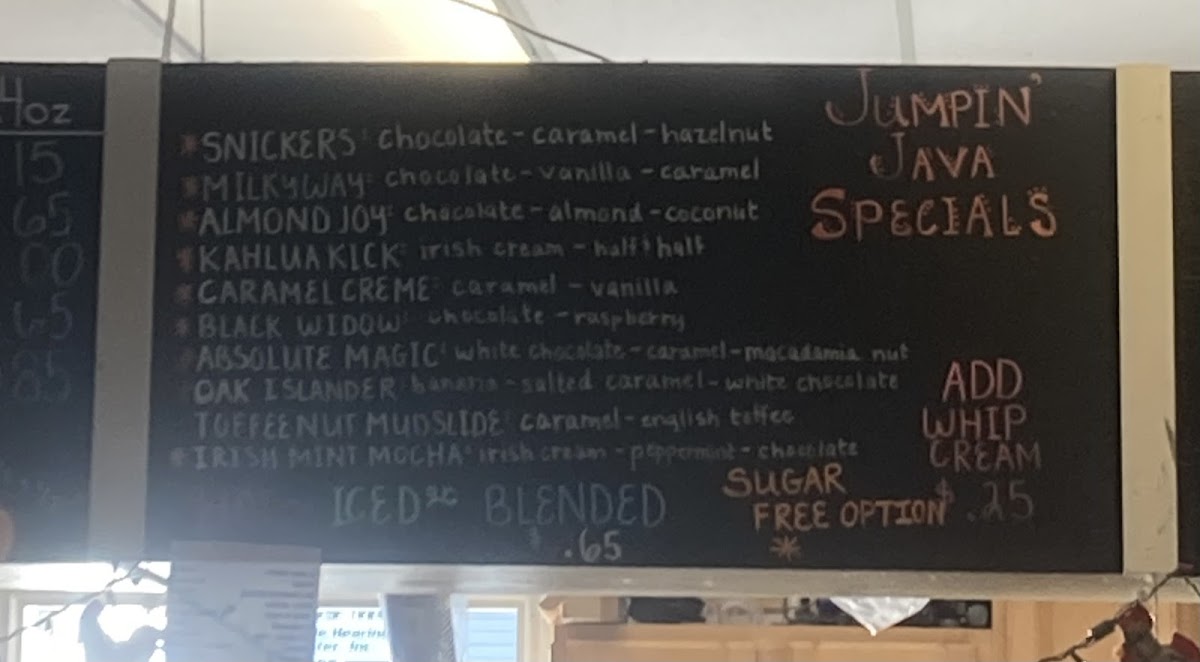 4oz
15
65
00
65
85
JUMPIN'
JAVA
SPECIALS
*SNICKERS: chocolate-caramel-hazelnut
*MILKYWAY: chocolate-vanilla-caramel
*ALMOND JOY: chocolate-almond-coconut
*KAHLUA KICK: irish cream-half & half
*CARAMEL CREME: caramel-vanilla
*BLACK WIDOW: chocolate-raspberry
*ABSOLUTE MAGIC: white chocolate-caramel-macadamia nut
OAK ISLANDER: banana-salted caramel-white chocolate
TOFFEENUT MUDSLIDE: caramel-english toffee
*IRISH MINT MOCHA: irish cream-peppermint-chocolate
ADD
WHIP
CREAM
$.25
ICED or BLENDED
.65
SUGAR
FREE OPTION
*